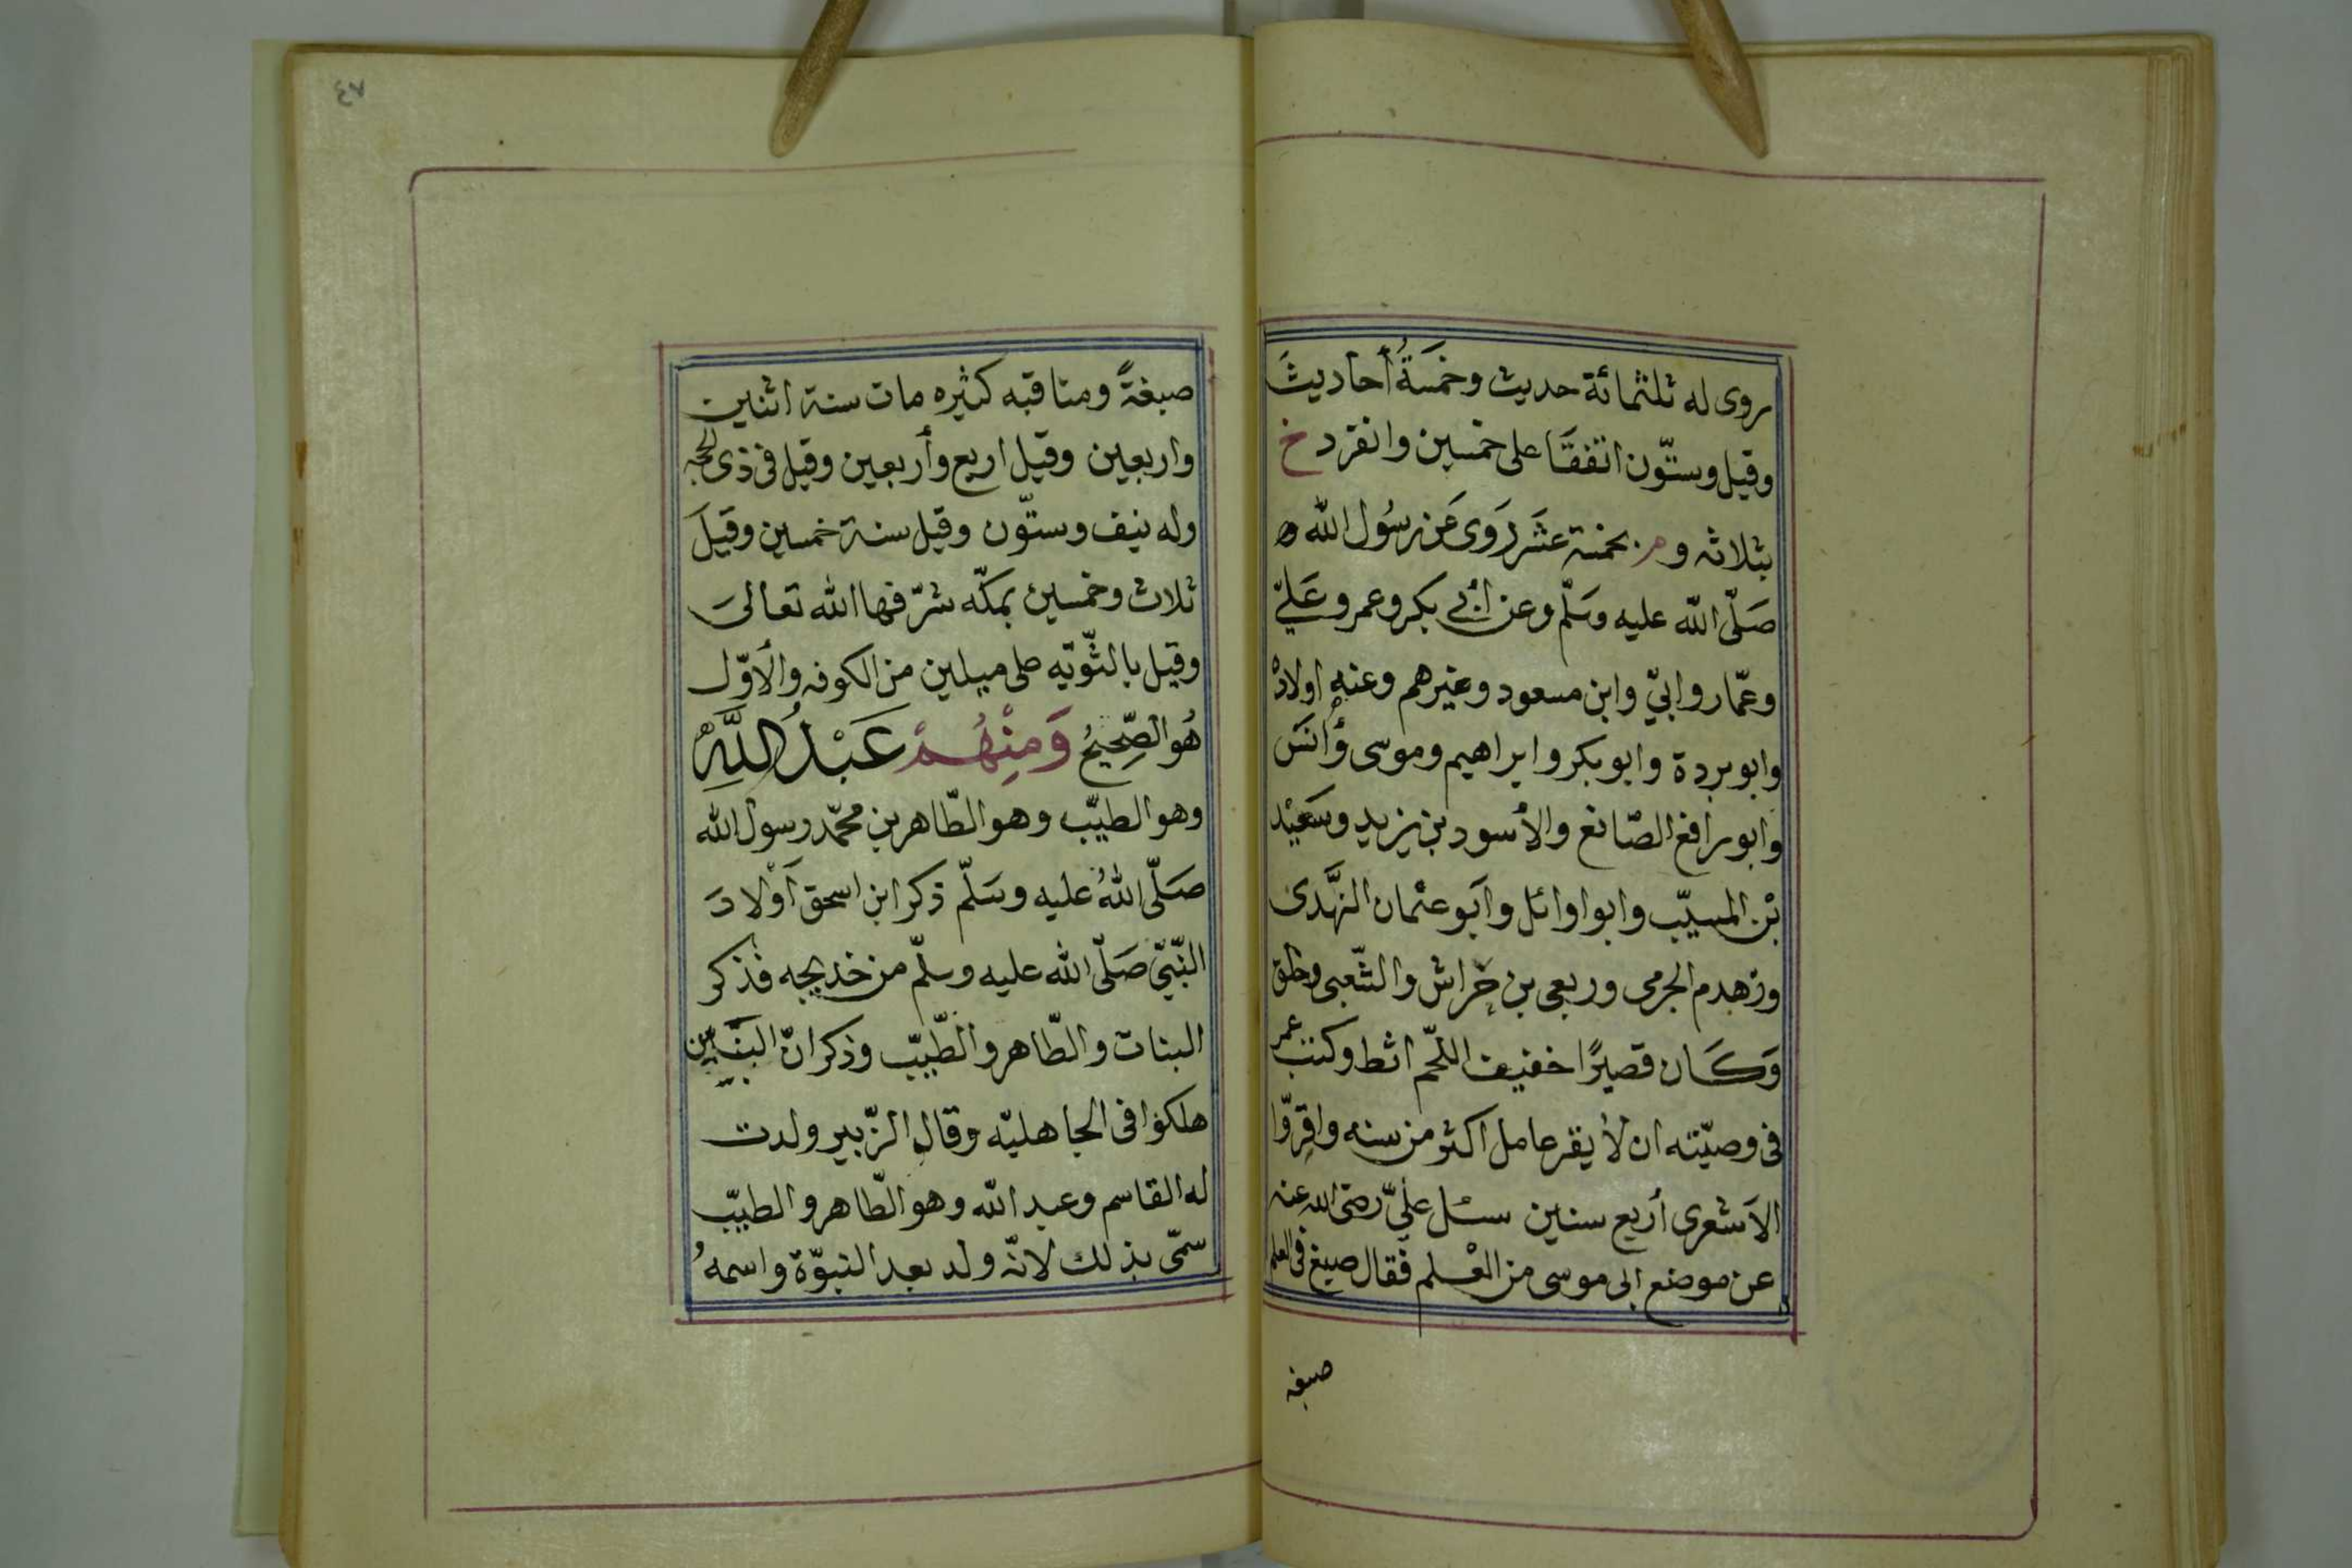 روى له ثلثمائة حديث وخمسةُ أحاديثَ
وقيل وستّون اتفقَا على خمسين وانفرد خ
بثلاثه و م بخمسة عشر رَوى عَن رسُول الله
صَلّى الله عليه وسَلّم وعن أبي بكر وعمر وعَليّ
وعمّار وابيّ وابن مسعود وغيرهم وعنه اولادهُ
وابو بردة وابو بكر وابراهيم وموسى وأنسَ
وابو رافع الصّائغ والأسود بن يزيد وسَعيْد
بْن المسيّب وابو اوائل وآبو عثمان النهَّدى
وزهدم الجرمى وربعى بن خراش والشّعبى وخلق
وَكَان قصيرًا خفيف اللحّم اثط وكتب عمر
فى وصيّته ان لأ يقر عامل اكثر من سنه واقِرّوا
الاَشعرى أربع سنين سئل عليّ رضى الله عنه
عن موضع ابى موسى من العْلم فقال صبغ فى العلم
صبغه
٤٧
صبغةً ومناقبه كثيره مات سنة اثنين
واربعين وقيل اربع وأربعين وقيل فى ذى الحجه
وله نيف وستّون وقيل سنة خمسين وقيلَ
ثلاث وخمسين بمكّه شرّفها الله تعالىَ
وقيل بالثّويّه على ميلين من الكوفه والأوّل
هُو الصّحِيحُ وَمِنْهُمْ عَبْدُ اللَّهِ
وهو الطيّب وهو الطّاهر بن محمّد رسول الله
صَلّى اللهُ عليه وسَلّم ذكر ابن اسحق اَوْلادَ
النّبيّ صَلّى الله عليه وسلّم من خديجه فذكر
البنات والطّاهر والطّيبّ وذكر انّ البنَين
هلكوا فى الجاهليّه وقال الزّبير ولدت
له القاسم وعبد الله وهو الطّاهر والطيبّ
سمّى بذلك لانّه ولد بعد النبوّة واسمهُ